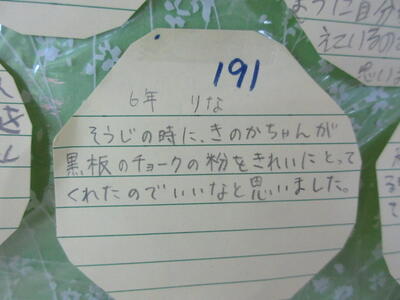 191
6年 りな
そうじの時に、きのかちゃんが
黒板のチョークの粉をきれいにとって
くれたのでいいなと思いました。
ように自分